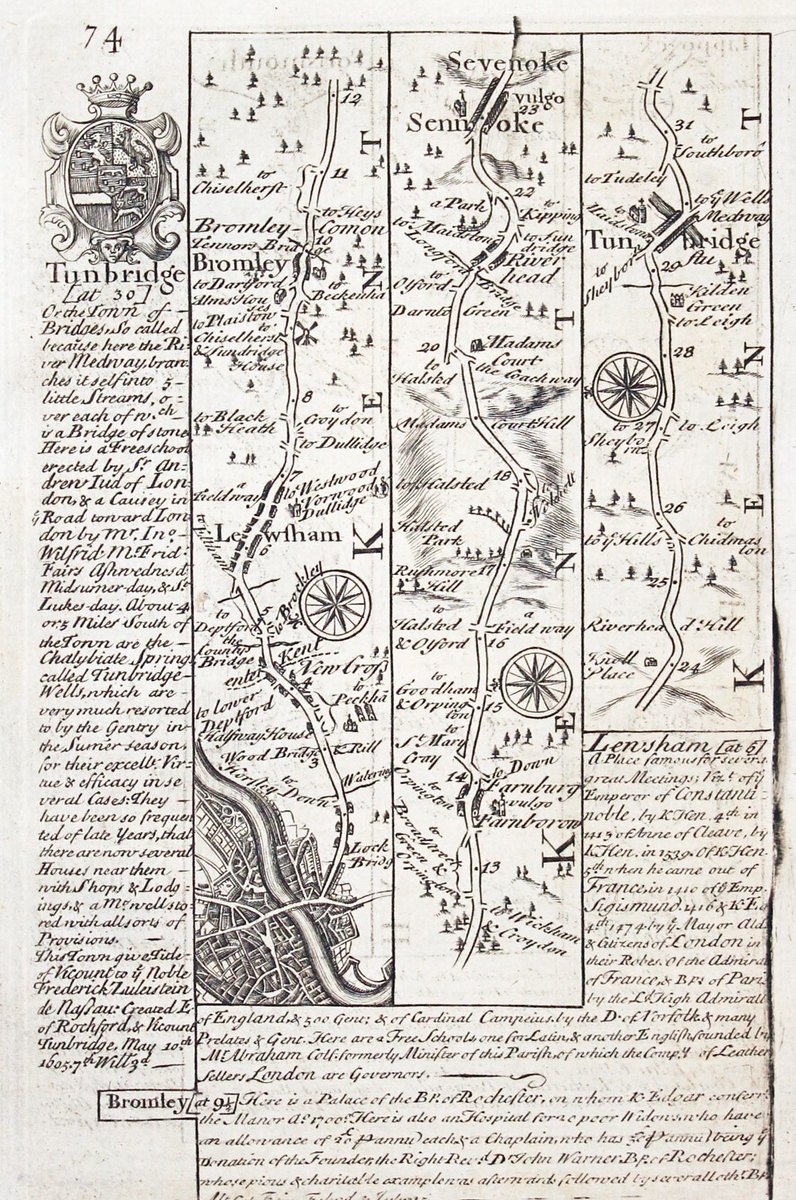 74
Tunbridge
[at 30]
Or the Town of
Bridges, So called
because here the Ri
ver Medway, bran
ches it self into 5
little Streams, o
ver each of wch
is a Bridge of stone
Here is a Freeschool
erected by Sr. An
drew Iud of Lon
don, & a Causey in
ye Road toward Lon
don by Mr. Ino.
Wilfrid Mr. Frid:
Fairs Ashwednesd.
Midsumer-day, & St.
Lukes-day. About 4
or 5 Miles South of
the Town are the
Chalybiate Springs
called Tunbridge
Wells, which are
very much resorted
to by the Gentry in
the Sumer season,
for their excellt. Vir
tue & efficacy in se
veral Cases: They
have been so frequen
ted of late Years, that
there are now several
Houses near them
with Shops & Lodg
ings, & a Mt. well sto
red with all sorts of
Provisions.
This Town give Title
of Vicount to ye Noble
Frederick Zuleistein
de Nassau: Created E
of Rochford, & Vicount
Tunbridge, May 10th
1695. 7th Will: 3d
12
11
to
Chiselherst
to Heys
Comon
Bromley
10
Bromley
to Dartford
to
Beckenha
Alms Hou
ses
to Plaistow
to
Chiselherst
& Sundridge
House
8
to Black
Heath
to
Croydon
to Dullidge
7
a
Fieldway
to Westwood
Norwood &
Dullidge
Lewsham
6
to Eltham
KENT
to Brockley
5
to
Deptford
the
County
Bridge
enter
Kent
New Cross
4
to
Peckha
to lower
Deptford
Halfway House
Wood Bridge
3
a Rill
to
Horsley Down
Watering
Lock
Bridg
Sevenoke
vulgo
23
Sennoke
22
a Park
to
Kipping
to Maidston
to Sun
dridge
River
head
Longford
Bridge
to
Otford
Darnts Green
20
to
Halsted
Madams
Court
the Coachway
Madams Court Hill
to Halsted
18
Halsted
Park
Rushmore
Hill
17
to
Halsted
& Otford
a
Fieldway
16
to
Goodham
& Orping
ton
15
to
St. Mary
Cray
to Down
14
to
Orpington
Farnburg
vulgo
Farnborow
to
Green &
Orpington
13
to Wickham
& Croydon
KENT
31
to
Southboro
to Tudeley
to ye Wells
Medway
flu
to
Maidstone
Tunbridge
29
to
Sheyborn
Kilden
Green
to Leigh
28
to
27
Sheybo
rn
to Leigh
26
to
ye Hills
to
Chidings
ton
25
Riverhead Hill
Knoll
Place
24
KENT
Lewsham [at 6]
A Place famous for several
great Meetings; Vizt. of ye
Emperor of Constanti
noble, by K. Hen. 4th in
1413 of Anne of Cleave, by
K. Hen. in 1539. Of K. Hen.
5th when he came out of
France, in 1410 of ye Emp.
Sigismund 1416 & K. Ed
4th 1474 by ye Mayor Ald.
& Citizens of London in
their Robes. Of the Admiral
of France, & Bp. of Paris
by the Ld. High Admirall
of England, & 500 Gent; & of Cardinal Campeius, by the D. of Norfolk, & many
Prelates & Gent. Here are 2 Free Schools, one for Latin, & another English, founded by
Mr. Abraham Colf, formerly Minister of this Parish, of which the Compy. of Leather
Sellers London are Governors.
Bromley [at 9¼] Here is a Palace of the Bp. of Rochester, on whom K. Edgar conferr'd
the Manor Ao. 700. Here is also an Hospital for 20 poor Widows, who have
an allowance of 20£ annu) each, & a Chaplain, who has 50£ annu) being ye
Donation of the Founder, the Right Revd. Dr. John Warner, Bp. of Rochester;
whose pious & charitable example was afterwards followed by several other Bps.